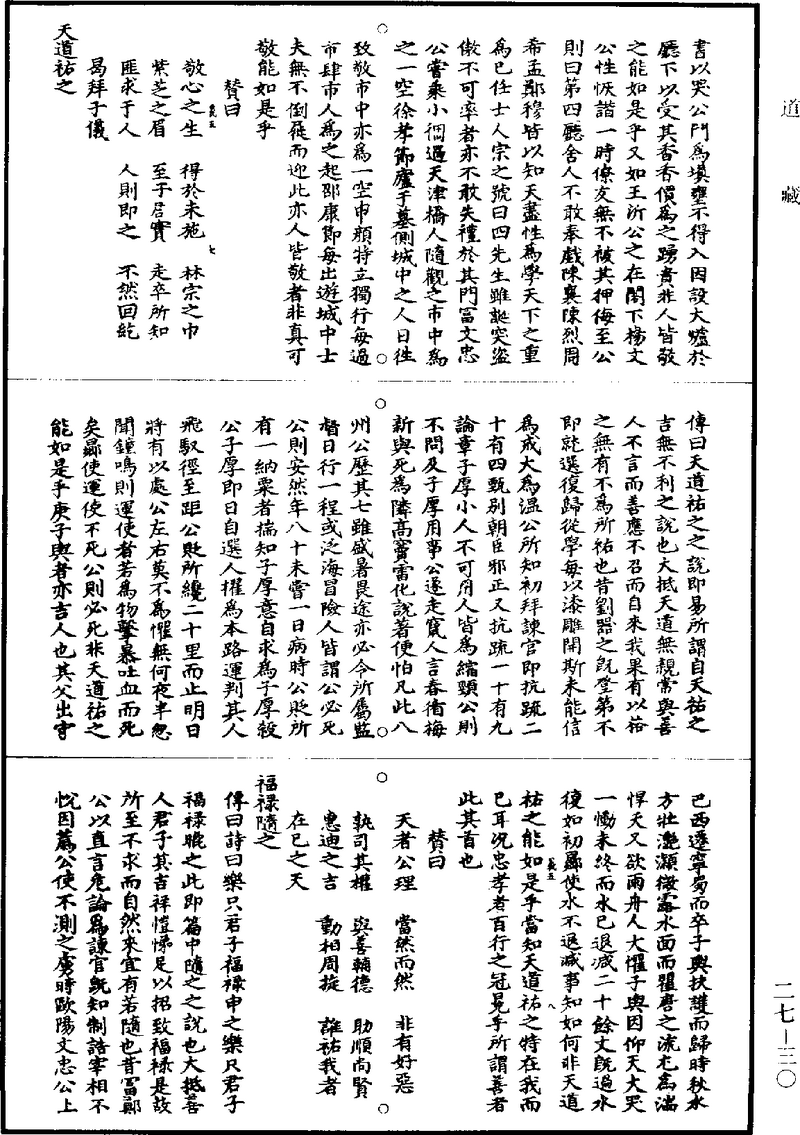 道藏
書以哭公門爲墳壅不得入因設大爐於
廳下以受其香香價爲之踴貴非人皆敬
之能如是乎又如王沂公之在閣下楊文
公性恢諧一時僚友無不被其狎侮至公
則曰第四廳舍人不敢奉戲陳襄陳烈周
希孟鄭穆皆以知天盡性爲學天下之重
爲已任士人宗之號曰四先生雖誕突盜
傲不可率者亦不敢失禮於其門富文忠
公嘗乘小轎過天津橋人隨觀之市中爲
之一空徐孝節廬于墓側城中之人日往
致敬市中亦爲一空申顔特立獨行每過
市肆市人爲之起邵康節每出遊城中士
夫無不倒屣而迎此亦人皆敬者非真可
敬能如是乎
贊曰
敬心之生 得於未施 林宗之巾
紫芝之眉 至于君實 走卒所知
匪求于人 人則即之 不然回紇
曷拜子儀
天道祐之
傳曰天道祐之之說即易所謂自天祐之
吉無不利之說也大抵天道無親常與善
人不言而善應不召而自來我果有以祐
之無有不爲所祐也昔劉器之旣登第不
即就選復歸從學每以漆雕開斯未能信
爲戒大爲溫公所知初拜諫官即抗疏二
十有四甄別朝臣邪正又抗疏一十有九
論章子厚小人不可用人皆爲縮頸公則
不問及子厚用事公遂走竄人言春循梅
新與死爲隣高竇雷化說著便怕凡此八
州公歷其七雖盛暑畏途亦必令所屬監
督日行一程或泛海冒險人皆謂公必死
公則安然年八十未嘗一日病時公貶所
有一納粟者揣知子厚意自求爲子厚殺
公子厚即日自選人擢爲本路運判其人
飛馭徑至距公貶所纔二十里而止明日
將有以處公左右莫不爲懼無何夜半忽
聞鐘鳴則運使者若爲物擊暴吐血而死
矣曏使運使不死公則必死非天道祐之
能如是乎庾子輿者亦吉人也其父出守
巴西遷寧蜀而卒子輿扶護而歸時秋水
方壯灧澦微露水面而瞿唐之流尤爲湍
悍天又欲雨舟人大懼子輿因仰天大哭
一慟未終而水已退減二十餘丈旣過水
復如初曏使水不退減事知如何非天道
祐之能如是乎當知天道祐之特在我而
已耳況忠孝者百行之冠冕乎所謂善者
此其首也
贊曰
天者公理 當然而然 非有好惡
執司其權 與善輔德 助順尚賢
惠迪之吉 動相周旋 誰祐我者
在已之天
福祿隨之
傳曰詩曰樂只君子福祿申之樂只君子
福祿膍之此即篇中隨之之說也大抵善
人君子其吉祥愷悌足以招致福祿是故
所至不求而自然來宜有若隨也昔富鄭
公以直言危論爲諫官旣知制誥宰相不
悅因薦公使不測之虜時歐陽文忠公上
二七—三〇